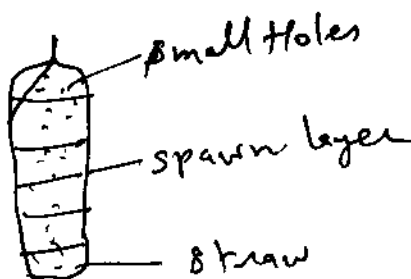 Small Holes
spawn layer
Straw